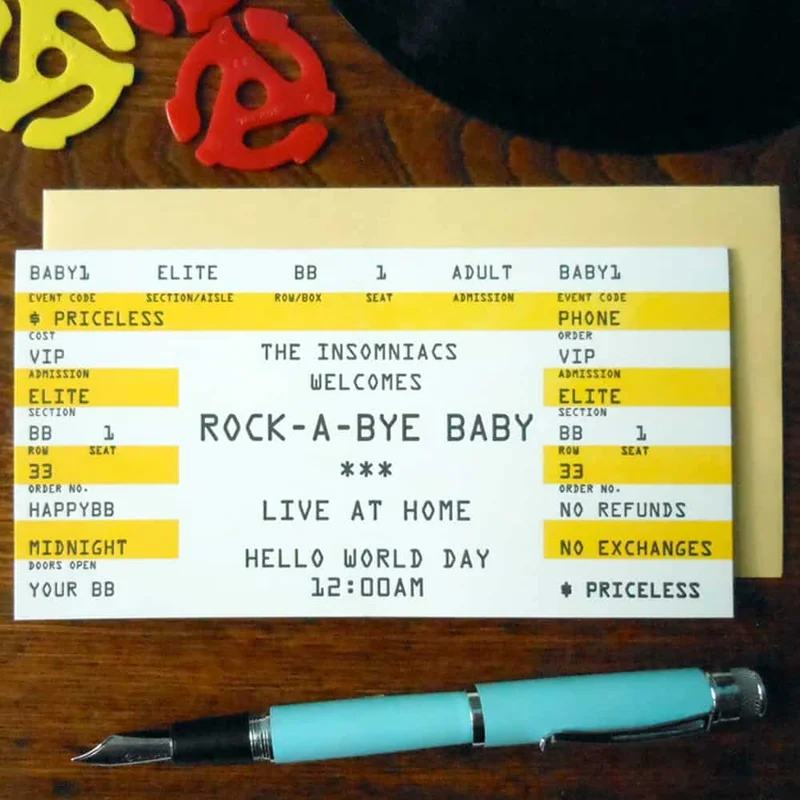 BABY1 ELITE BB 1 ADULT BABY1
EVENT CODE SECTION/AISLE ROW/BOX SEAT ADMISSION EVENT CODE
$ PRICELESS PHONE
COST ORDER
VIP THE INSOMNIACS VIP
ADMISSION WELCOMES ADMISSION
ELITE ELITE
SECTION ROCK-A-BYE BABY SECTION
BB 1 BB 1
ROW SEAT ROW SEAT
33 *** 33
ORDER NO. ORDER NO.
HAPPYBB LIVE AT HOME NO REFUNDS
MIDNIGHT HELLO WORLD DAY NO EXCHANGES
DOORS OPEN
YOUR BB 12:00AM $ PRICELESS